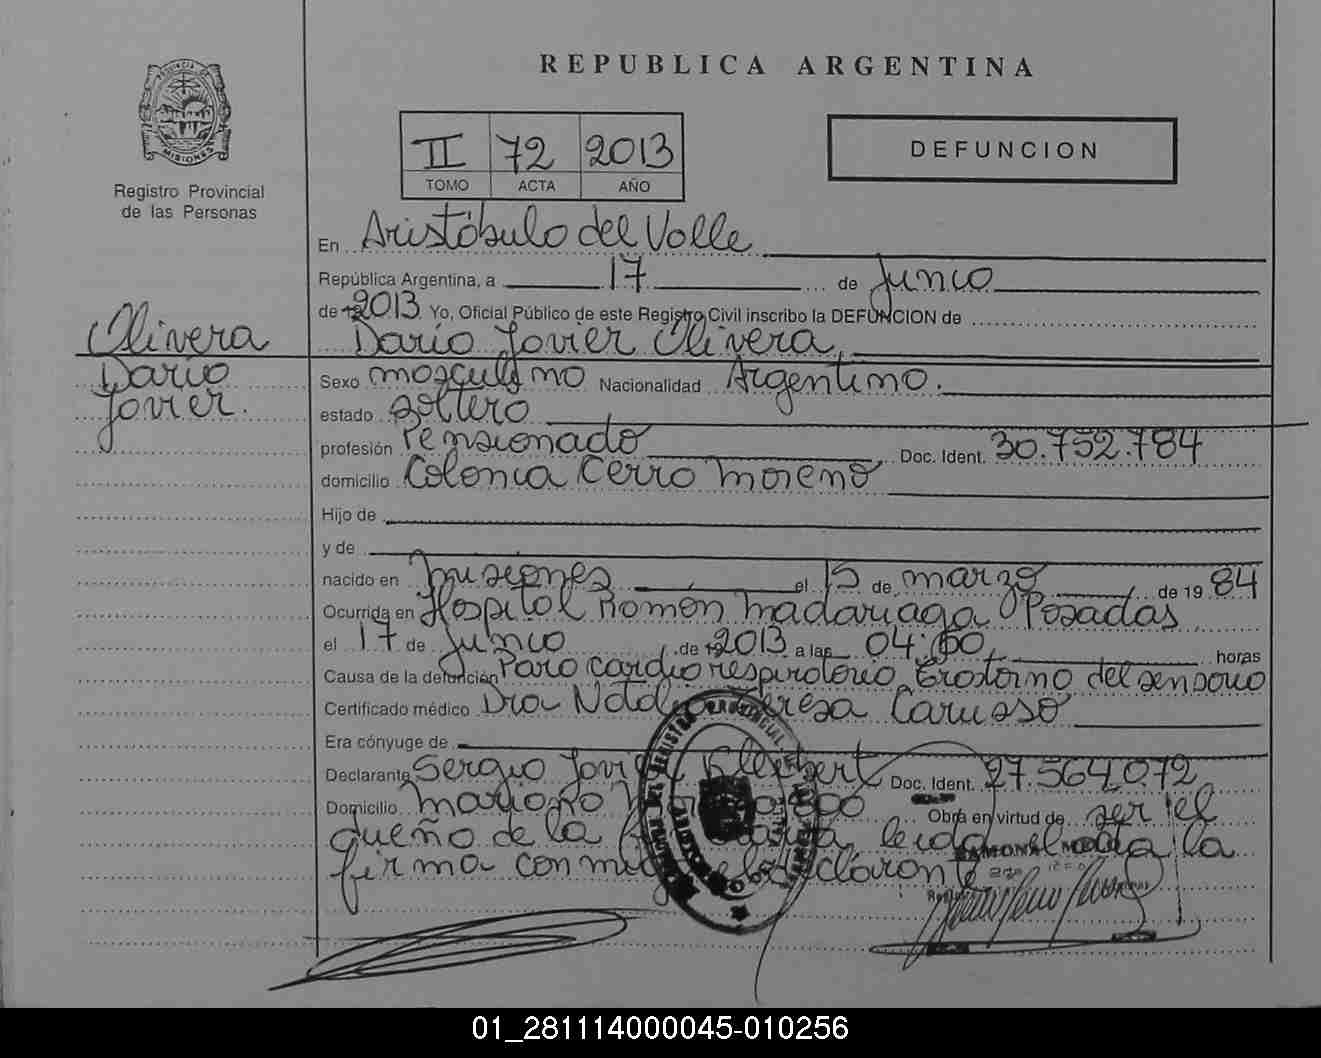 REPUBLICA ARGENTINA
PROVINCIA DE
MISIONES
Registro Provincial
de las Personas
II 72 2013
TOMO ACTA AÑO
DEFUNCION
En Aristóbulo del Valle
República Argentina, a 17 de Junio
de 2013 Yo, Oficial Público de este Registro Civil inscribo la DEFUNCION de
Olivera
Darío
Javier.
Darío Javier Olivera,
Sexo masculino Nacionalidad Argentino.
estado soltero
profesión Pensionado Doc. Ident. 30.752.784
domicilio Colonia Cerro Moreno
Hijo de
y de
nacido en Misiones el 15 de marzo de 1984
Ocurrida en Hospital Ramón Madariaga Posadas
el 17 de Junio de 2013 a las 04:00 horas
Causa de la defunción Paro cardiorespiratorio, trastorno del sensorio
Certificado médico Dra Teresa Carusso
Era cónyuge de
Declarante Sergio Doc. Ident. 27.564.072
Domicilio Mariano Obra en virtud de ser el
dueño de la leida el acta la
firma conmigo el declarante
01_281114000045-010256